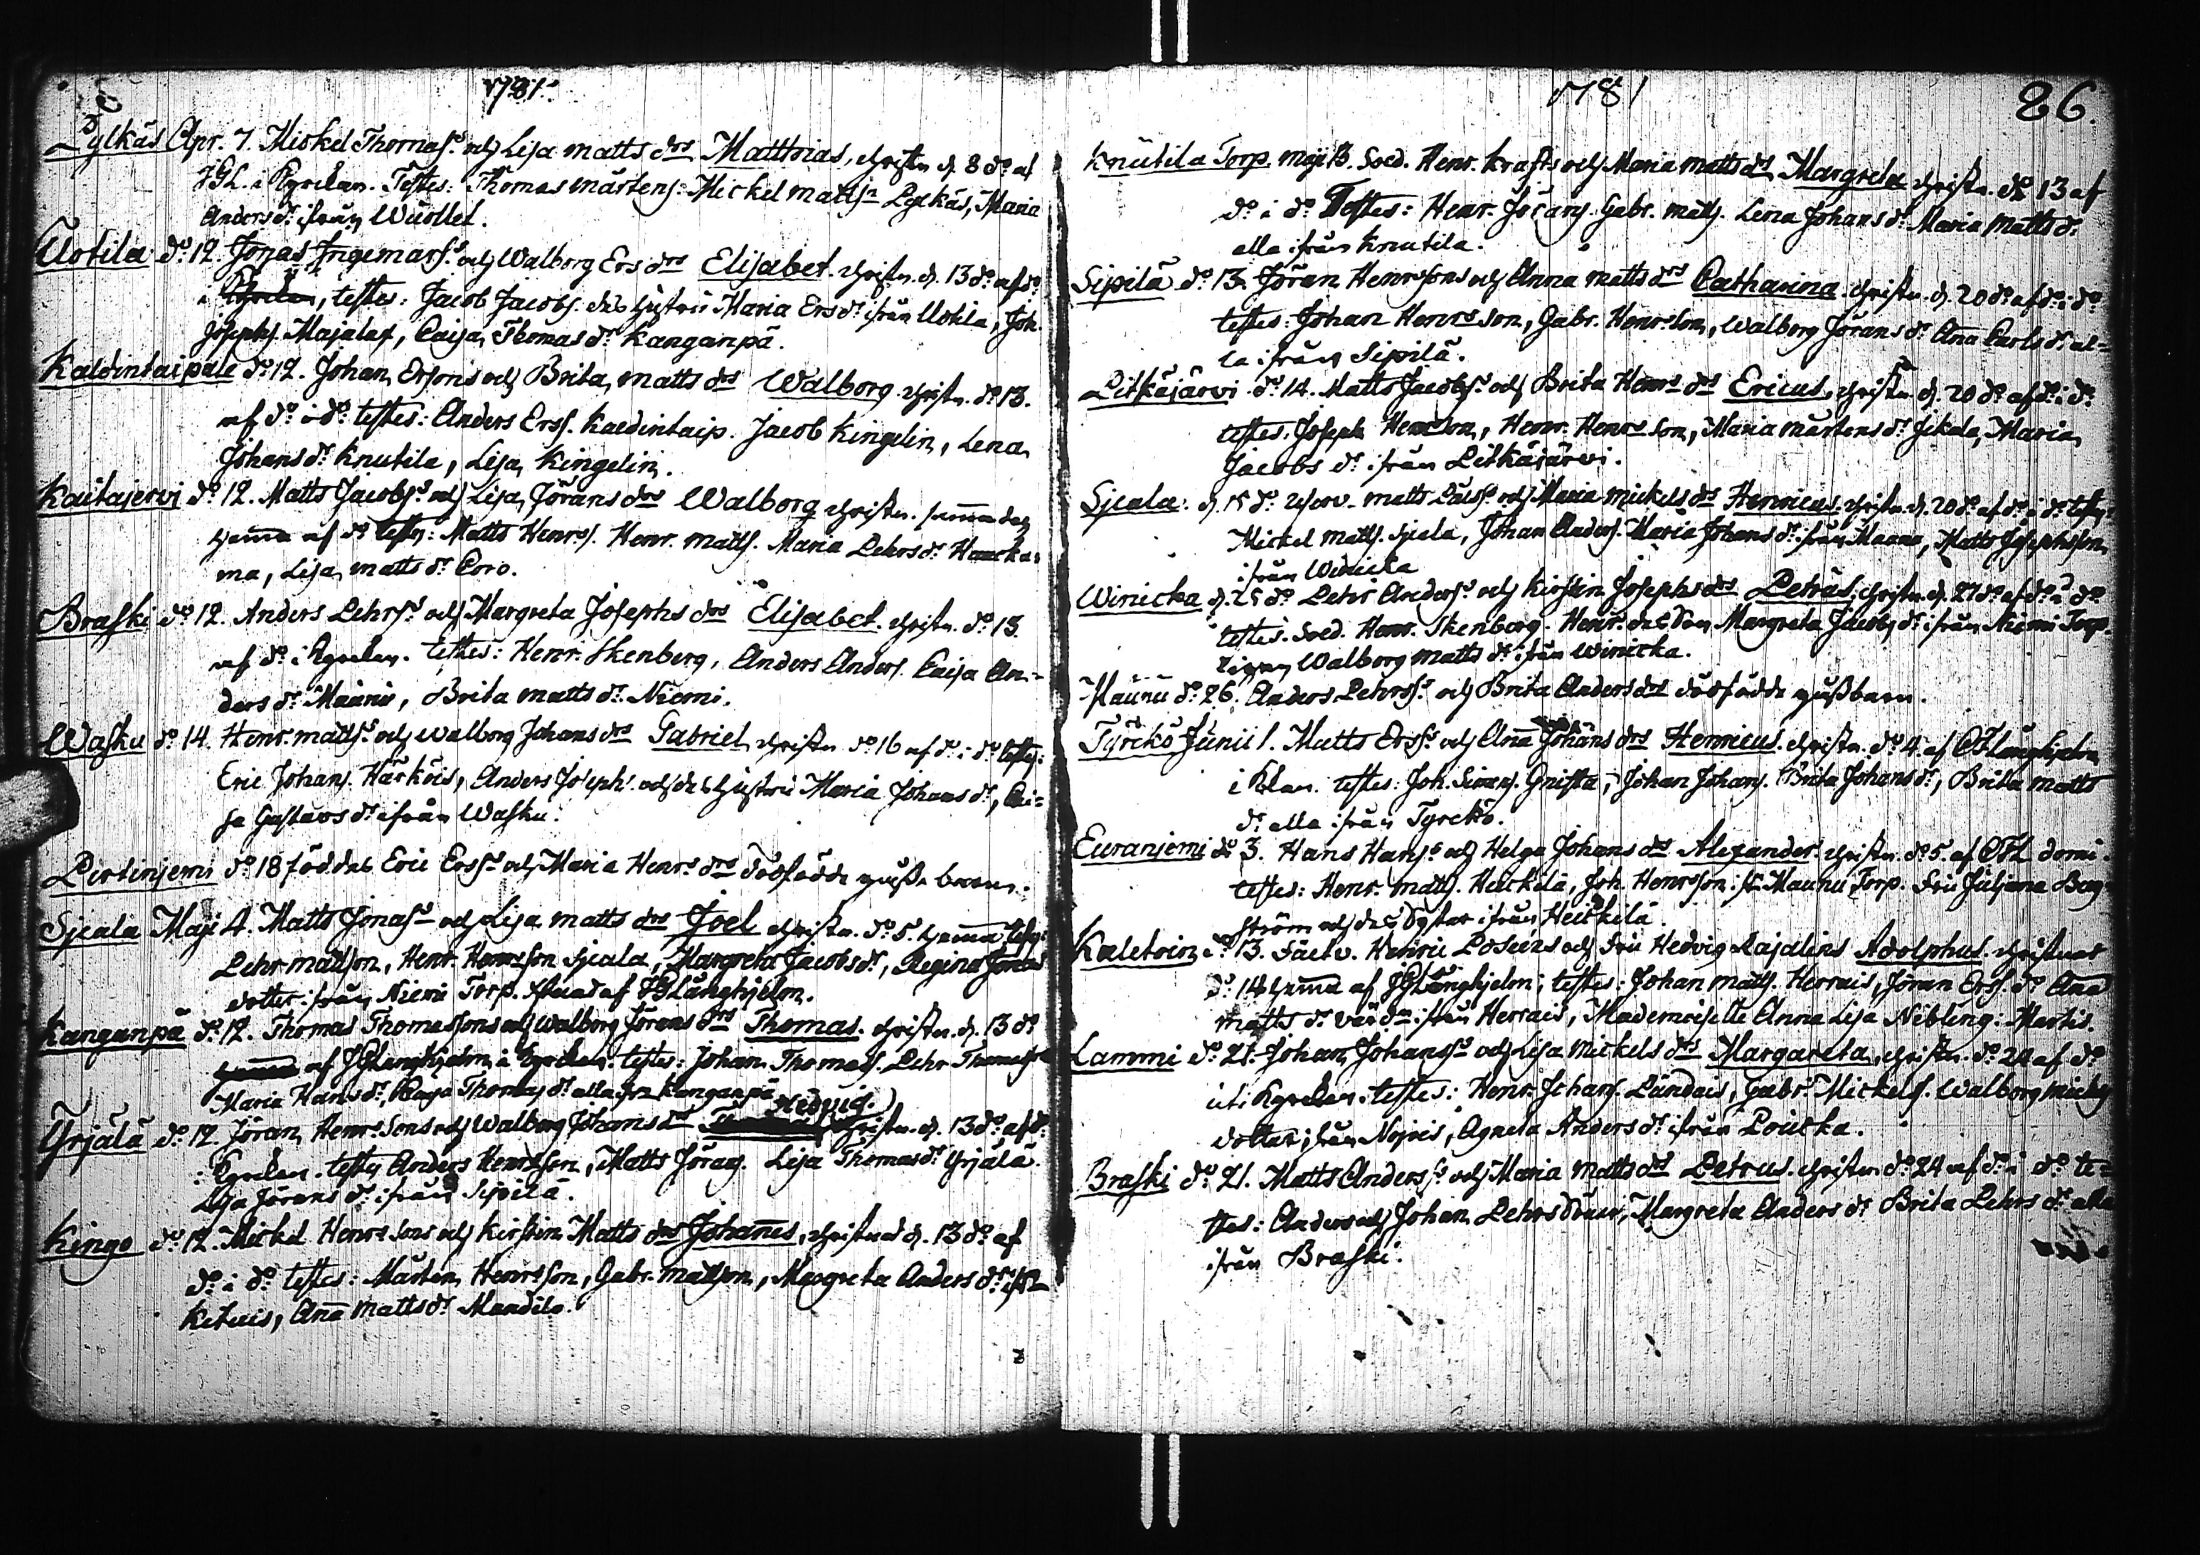 1781.
Pylkäs Apr. 7. Mickel Thomass. och Lisa matts drs Matthias, christn d. 8 do af
JGL. i Kyrckan. Testes: Thomas mårtens. Mickel mattsn Pylkäs, Maria
Anders dr ifrån Wuollet.
Uotila do 12. Jonas Ingemarss. och Walborg Ers drs Elisabet. christn. d. 13 do af do
i Kyrckan, testes: Jacob Jacobs. des hustru Maria Ers dr ifrån Uotila, Joh.
Josephs. Majalax, Caisa Thomas dr Kanganpä.
Kaldintaipale do 12. Johan Ersons och Brita matts drs Walborg. christn. do 13.
af do i do. testes: Anders Erss. Kaldintaip. Jacob Kingelin, Lena
Johans dr Knutila, Lisa Kingelin.
Kaitajerwi do 12. Matts Jacobss. och Lisa Jörans drs Walborg christn. samma dag
hemma af do testes: Matts Henrs. Henr. matts. Maria Pehrs dr Haucka=
ma, Lisa matts dr Poro.
Braski do 12. Anders Pehrss. och Margreta Josephs drs Elisabet. christn. do 13.
af do i Kyrckan. testes: Henr. Skenberg, Anders Anders. Caisa An=
ders dr Maunu, Brita matts dr Niemi.
Wasku do 14. Henr. mattss. och Walborg Johans drs Gabriel christn. do 16 af do i do testes:
Eric Johans. Härköis, Anders Josephs. och des hustru Maria Johans dr, Cai=
sa Gustavs dr ifrån Wasku.
Pirtinjemi do 18 föddes Eric Erss. och Maria Henrs drs dödfödde gusse barn.
Sjeala Maji 4. Matts Jonass. och Lisa matts drs Joel christn. do 5. hemma testes:
Pehr mattson, Henr. Henrsson Sjeala, Margreta Jacobs dr, Regina Jonas
dotter ifrån Niemi Torp. af JGLånghjelm.
Kanganpä do 12. Thomas Thomassons och Walborg Jörans drs Thomas. christn. d. 13 do
af JGLånghjelm i Kyrckan. testes: Johan Thomass. Pehr Thomass
Maria Hans dr, Caisa Thomas dr alla från Kanganpä
Hedvig.
Yrjälä do 12. Jöran Henrs Sons och Walborg Johans drs christn. d. 13 do af do
i Kyrckan. testes Anders Henrsson, Matts Jörans. Lisa Thomas dr Yrjälä.
Lisa Jörans dr ifrån Sipilä.
Kingo do 12. Mickel Henrs Sons och Kirstin Matts drs Johannes, christnad d. 13 do af
do i do testes: Mårten Henrsson, Gabr. mattson, Margreta Anders dr ifrån
Ketuis, Anna matts dr Mandila.
1781
86.
Knutila Torp. maji 13. Sold. Henr. Krafts och Maria matts drs Margreta christn. do 13 af
do i do Testes: Henr. Jörans. Gabr. matts. Lena Johans dr Maria matts dr
alla ifrån Knutila.
Sipilä do 13. Jöran Henrssons och Anna matts drs Catharina christn. d. 20 do af do i do
testes: Johan Henrs son, Gabr. Henrs son, Walborg Jörans dr Anna Carls dr al=
la ifrån Sipilä.
Pitkäjärvi do 14. Matts Jacobss. och Brita Henrs drs Ericus, christn d. 20 do af do i do
testes: Joseph Henrsson, Henr. Henrs son, Maria mårtens dr Jekala, Maria
Jacobs dr ifrån Pitkäjärvi.
Sjeala. d. 15 do matts Pålss. och Maria mickels drs Henricus, christn. d. 20 do af do i do testes:
Mickel matts. Sjeala, Johan Anders. Maria Johans dr ifrån Maunu, Matts Josephsson
ifrån Winicka
Winicka d. 25 do Pehr Anderss. och Kirstin Josephs drs Petrus, christn. d. 27 do af do i do
testes: Sold. Henr. Skenberg. Henr. des Son Margreta Jacobs dr ifrån Niemi Torp.
Pigan Walborg matts dr ifrån Winicka.
Maunu do 26. Anders Pehrss. och Brita Anders drs dödfödde gussbarn.
Tyrckö Junii 1. Matts Erss. och Anna Johans drs Henricus. christn. do 4. af CFLånghjelm
i testes: Joh. Simons. Gnista, Johan Johans. Brita Johans dr, Brita matts
dr alla ifrån Tyrckö.
Euranjemi do 3. Hans Hanss. och Helga Johans drs Alexander. christn. do 5. af CFL domi.
testes: Henr. matts. Heickilä, Joh. Henrsson. fr. Maunu Torp. Fru Juliana Bag
ström och des Syster ifrån Heickilä
Kaletoin do 13. Henric Poseins och Fru Hedvig Lajalins Adolphus. christnat
do 14 hemma af JGLånghjelm; testes: Johan matts. Herrais, Jöran Erss. do Anna
matts dr ifrån Herrais, Mademoiselle Anna Lisa Nibling. Martis.
Lammi do 21. Johan Johanss. och Lisa Mickels drs Margareta, christn. do 24 af do
uti Kyrckan. testes: Henr. Johans. Pändais, Gabr. Mickels. Walborg mickels
dotter ifrån Nojois, Agneta Anders dr ifrån Poucka.
Braski do 21. Matts Anderss. och Maria matts drs Petrus. christn do 24 af do i do te=
stes: Anders och Johan Pehrs Söner, Margreta Anders dr Brita Pehrs dr alla
ifrån Braski.